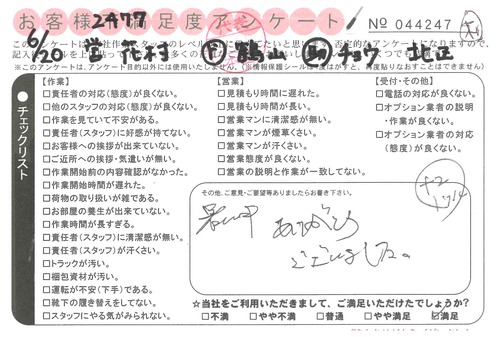 お客様満足度アンケート
2477
No 044247
6/20 営 花村
鶴山
チョウ
このアンケートは
※このアンケートは、アンケート目的以外には使用いたしません。(※情報保護シール
チェックリスト
【作業】
□責任者の対応(態度)が良くない。
□他のスタッフの対応(態度)が良くない。
□作業を見ていて不安がある。
□責任者(スタッフ)に好感が持てない。
□お客様への挨拶が出来ていない。
□ご近所への挨拶・気遣いが無い。
□作業開始前の内容確認がなかった。
□作業開始時間が遅れた。
□荷物の取り扱いが雑である。
□お部屋の養生が出来ていない。
□作業時間が長すぎる。
□責任者(スタッフ)に清潔感が無い。
□責任者(スタッフ)が汗くさい。
□トラックが汚い。
□梱包資材が汚い。
□運転が不安(下手)である。
□靴下の履き替えをしてない。
□スタッフにやる気がみられない。
【営業】
□見積もり時間に遅れた。
□見積もり時間が長い。
□営業マンに清潔感が無い。
□営業マンが煙草くさい。
□営業マンが汗くさい。
□営業態度が良くない。
□営業の説明と作業が一致してない。
【受付・その他】
□電話の対応が良くない。
□オプション業者の説明
・作業が良くない。
□オプション業者の対応
(態度)が良くない。
その他、ご意見・ご要望等ありましたらお書き下さい。
暑い中 ありがとう
ございました。
☆当社をご利用いただきまして、ご満足いただけたでしょうか?
□不満 □やや不満 □普通 □やや満足 ☑満足